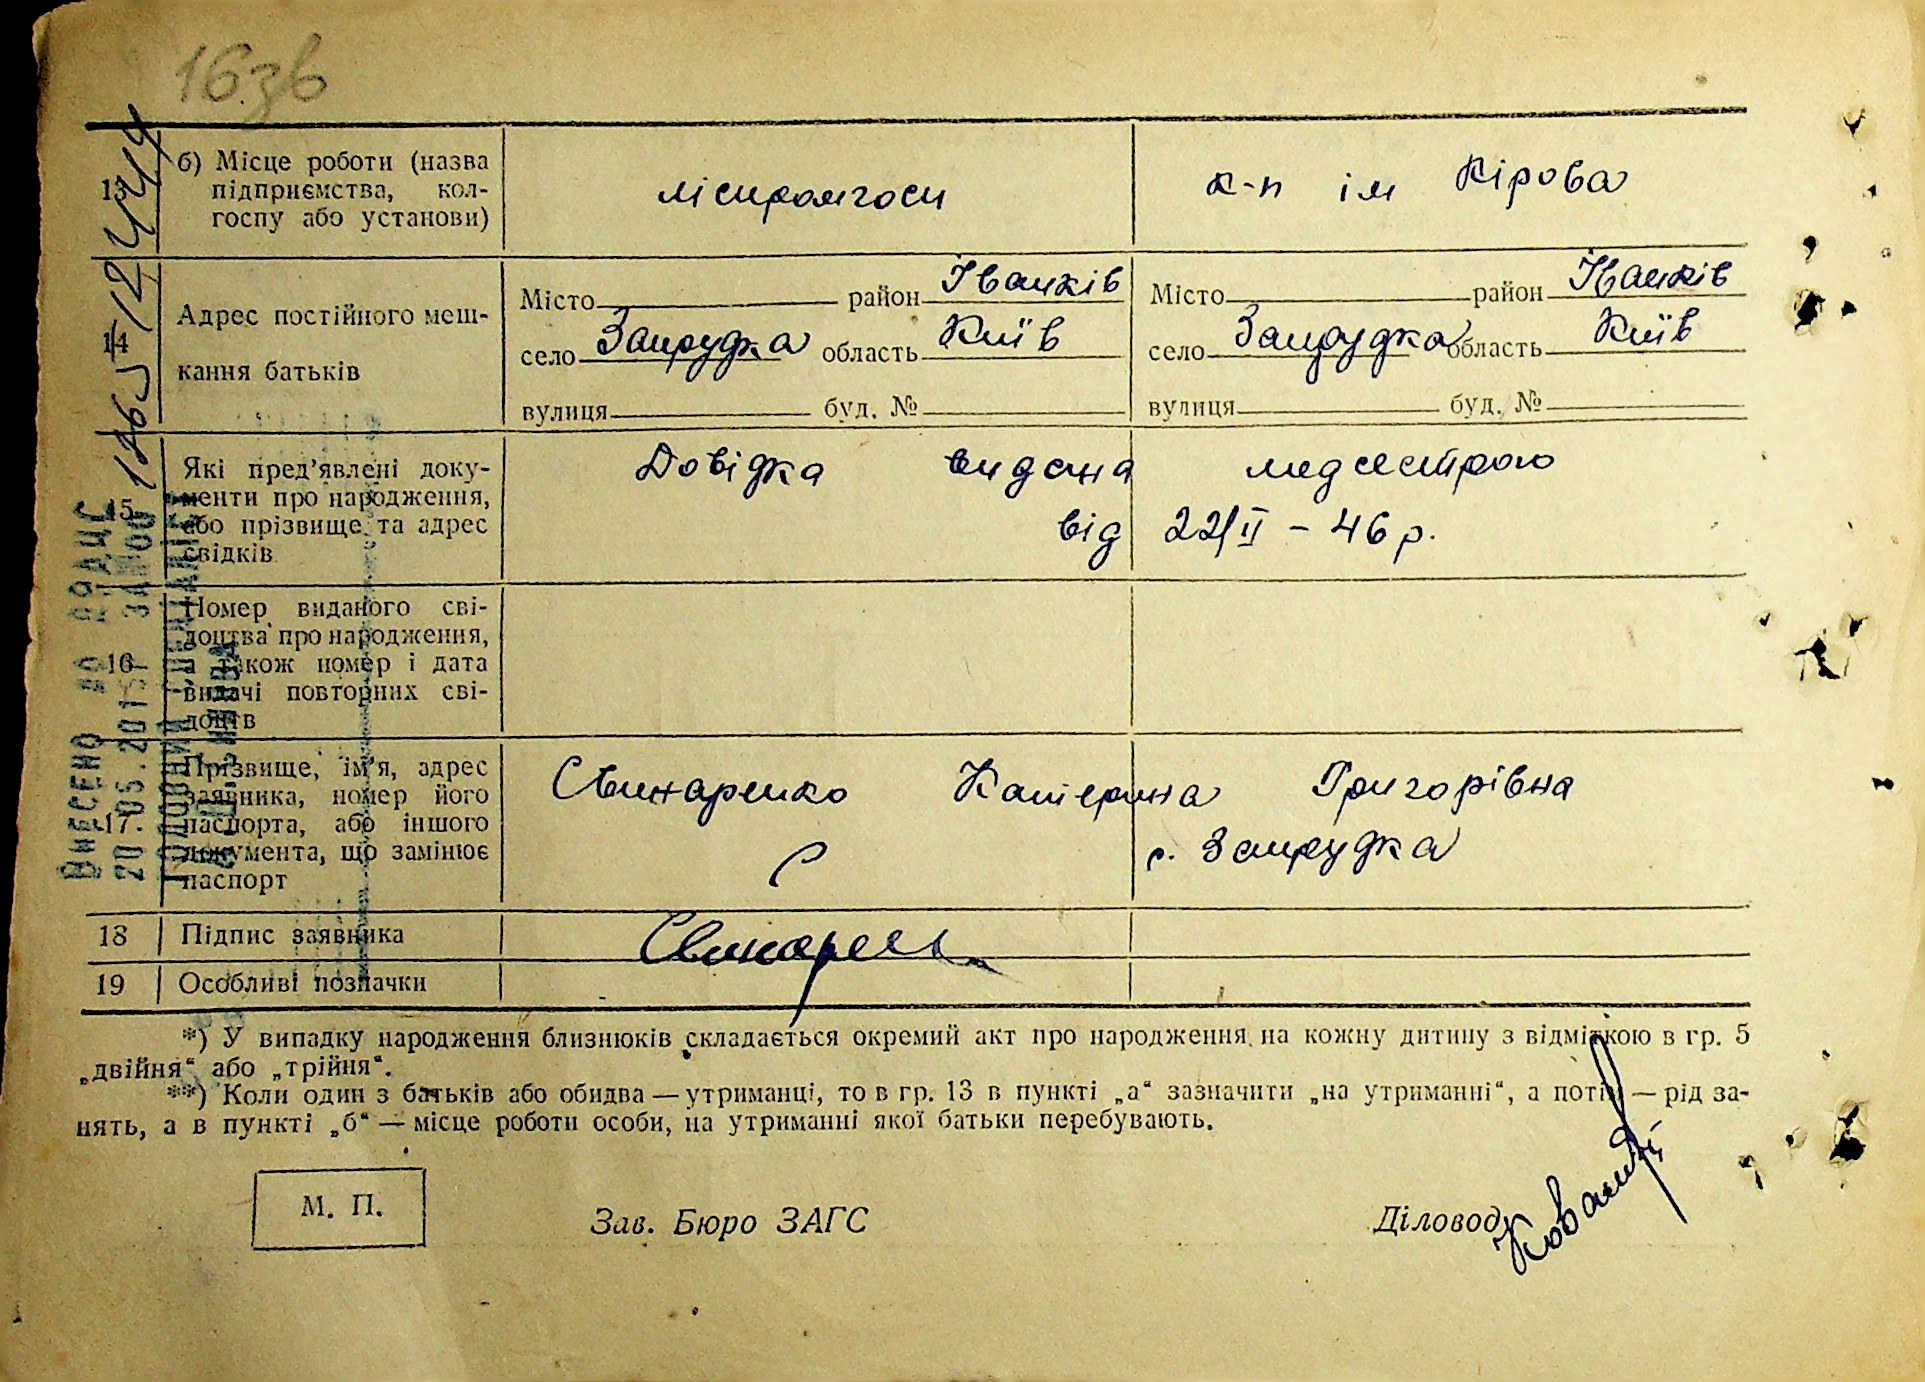 16зв
13
б) Місце роботи (назва
підприємства, кол-
госпу або установи)
ліспромгосп
к-п ім Кірова
14
Адрес постійного меш-
кання батьків
Місто район Іванків
село Запрудка область Київ
вулиця буд. №
Місто район Іванків
село Запрудка область Київ
вулиця буд. №
15
Які пред’явлені доку-
менти про народження,
або прізвище та адрес
свідків
Довідка видана медсестрою
від 22/ІІ – 46 р.
16
Номер виданого сві-
доцтва про народження,
а також номер і дата
видачі повторних сві-
доцтв
17
Прізвище, ім’я, адрес
заявника, номер його
паспорта, або іншого
документа, що замінює
паспорт
Свинаренко Катерина Григорівна
с. Запрудка
18
Підпис заявника
Свинарен
19
Особливі позначки
ВНЕСЕНО ДО ДРАЦС
*) У випадку народження близнюків складається окремий акт про народження на кожну дитину з відміткою в гр. 5
„двійня“ або „трійня“.
**) Коли один з батьків або обидва — утриманці, то в гр. 13 в пункті „а“ зазначити „на утриманні“, а потім — рід за-
нять, а в пункті „б“ — місце роботи особи, на утриманні якої батьки перебувають.
М. П.
Зав. Бюро ЗАГС
Діловод